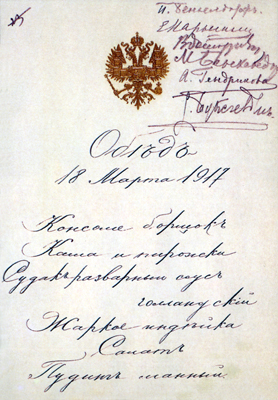 П. Бенкендорфъ
Е. Нарышкина
М. Бѣляевъ
А. Гендрикова
Обѣдъ
18 Марта 1917
Консоме борщокъ
Каша и пирожки
Судакъ разварный соусъ
голландскій
Жаркое индѣйка
Салатъ
Пудингъ манный